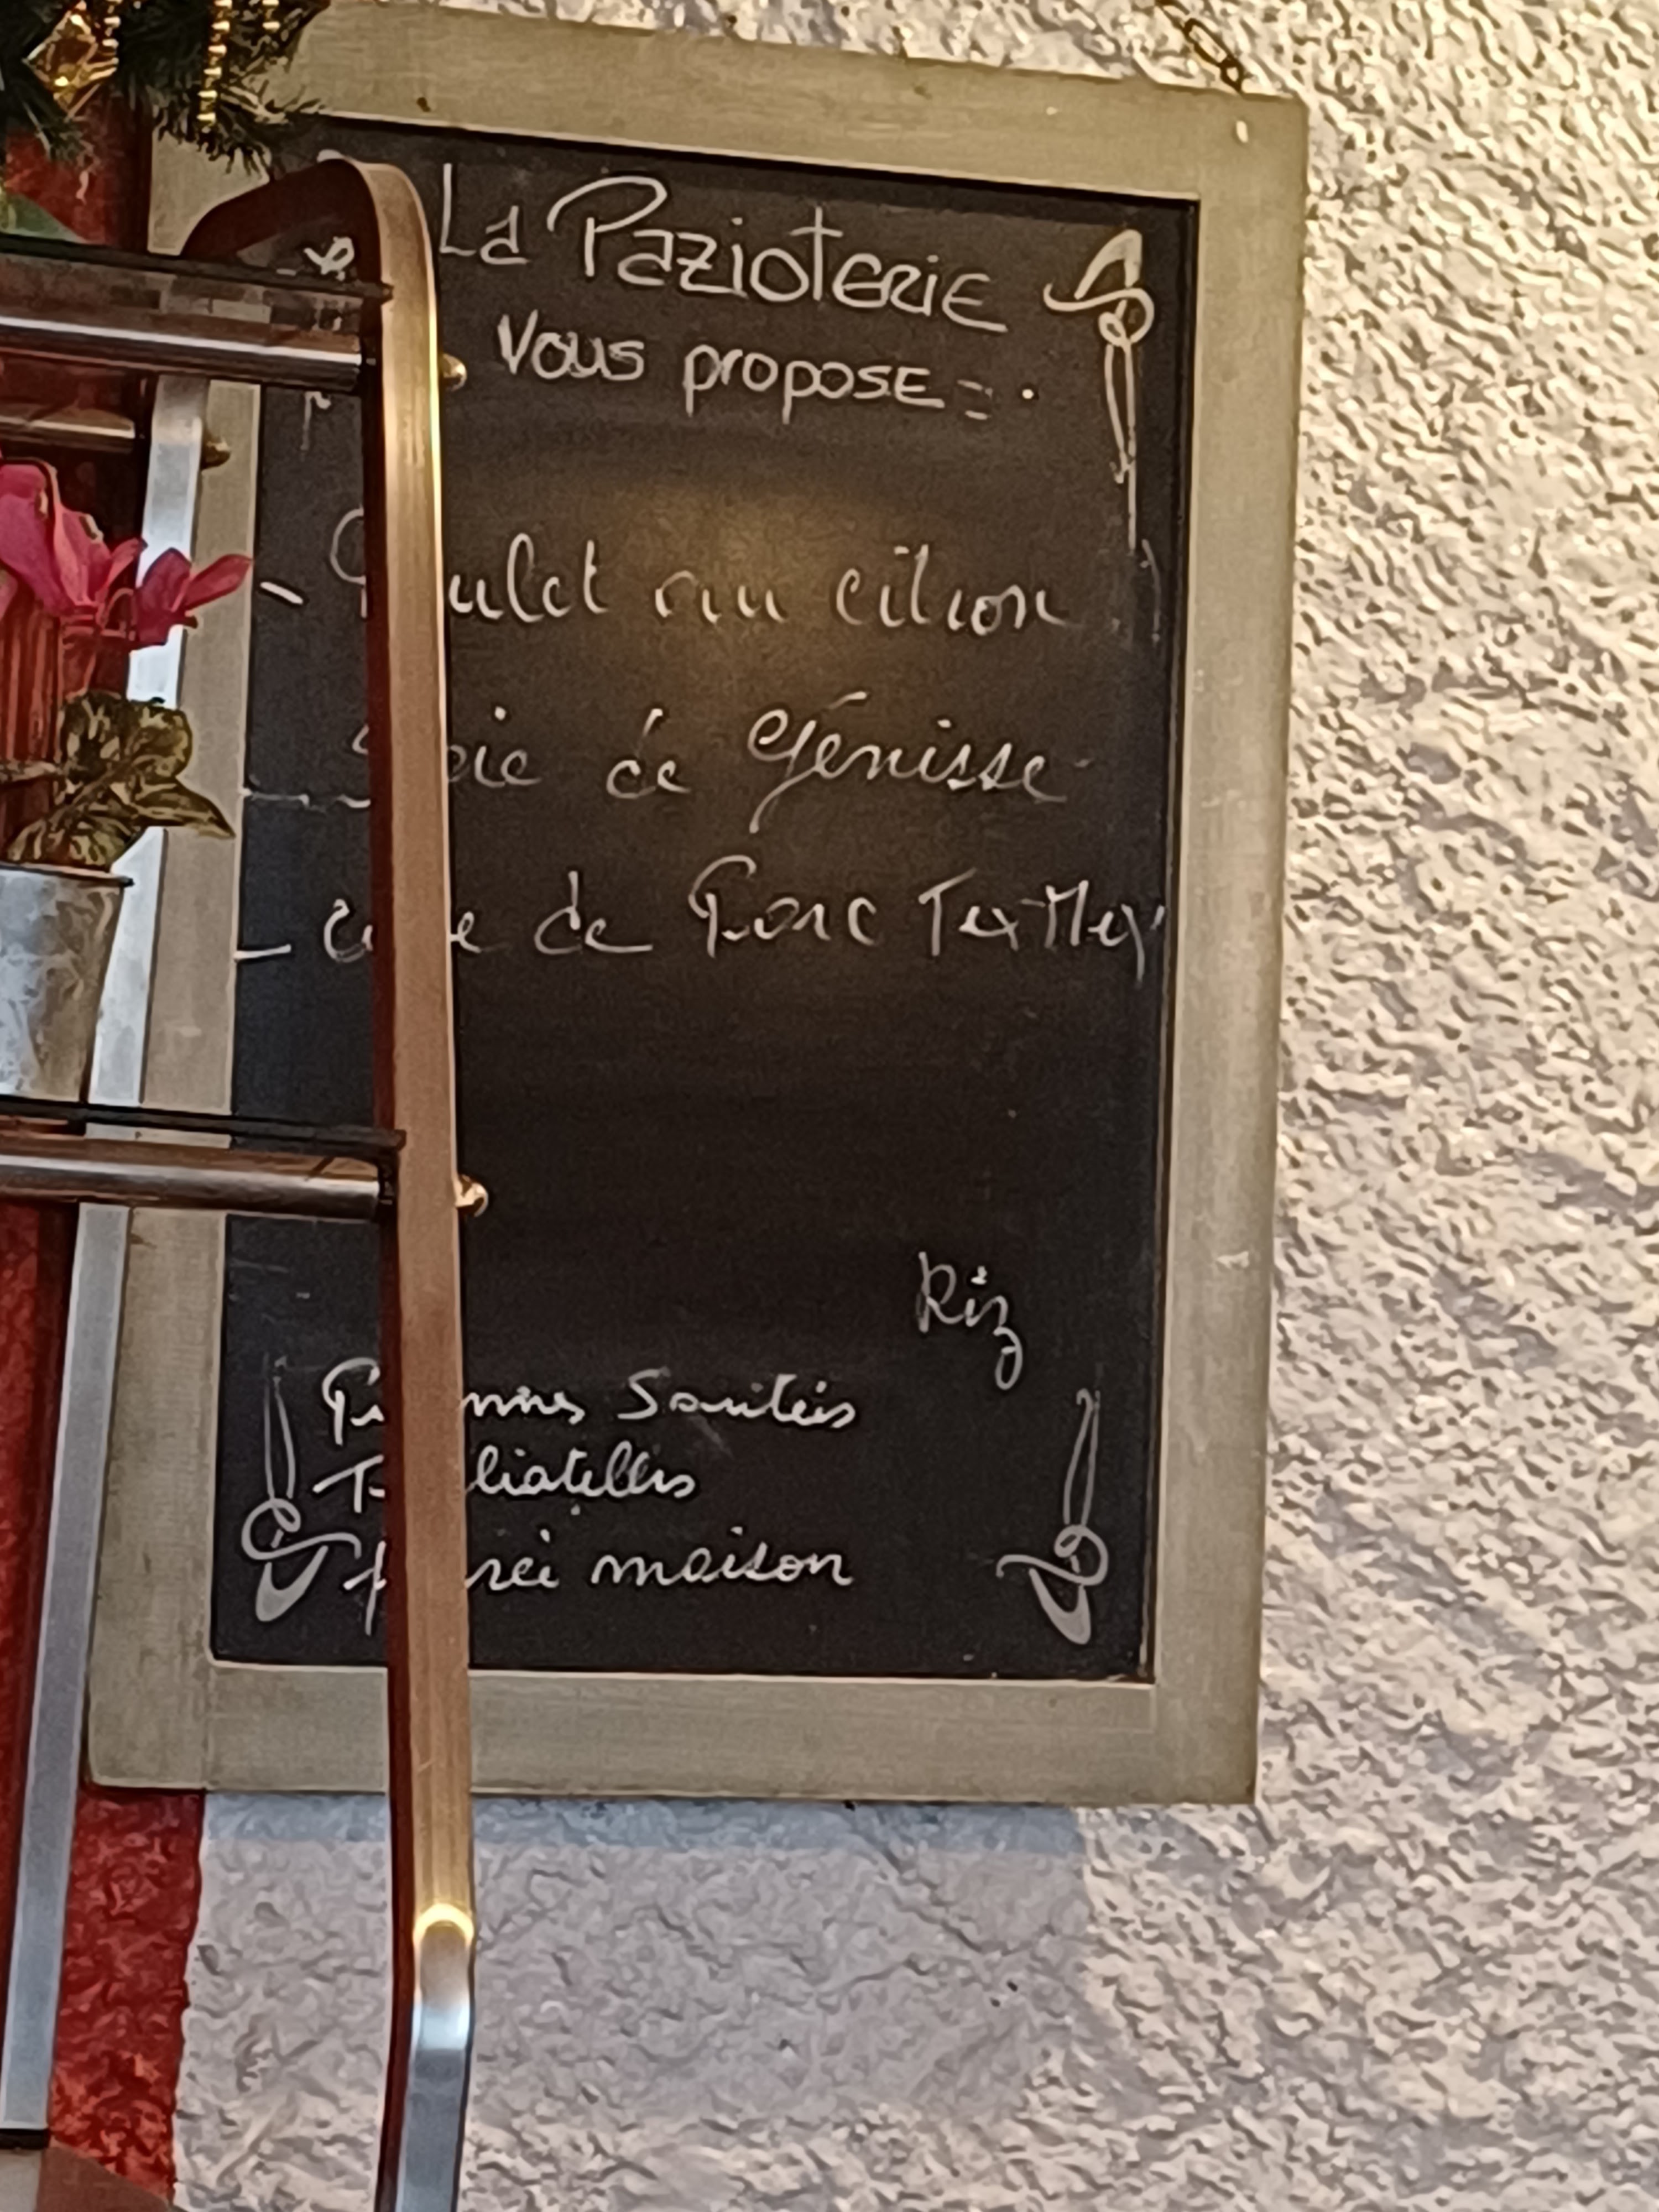 La PazioTERiE
Vous propose :
- Poulet au citron
- Foie de Génisse
- côte de Porc Tex Mex
Riz
Pommes Sautées
Tagliatelles
purée maison